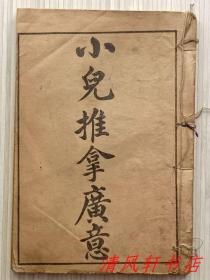 小兒推拿廣意
清风轩书店